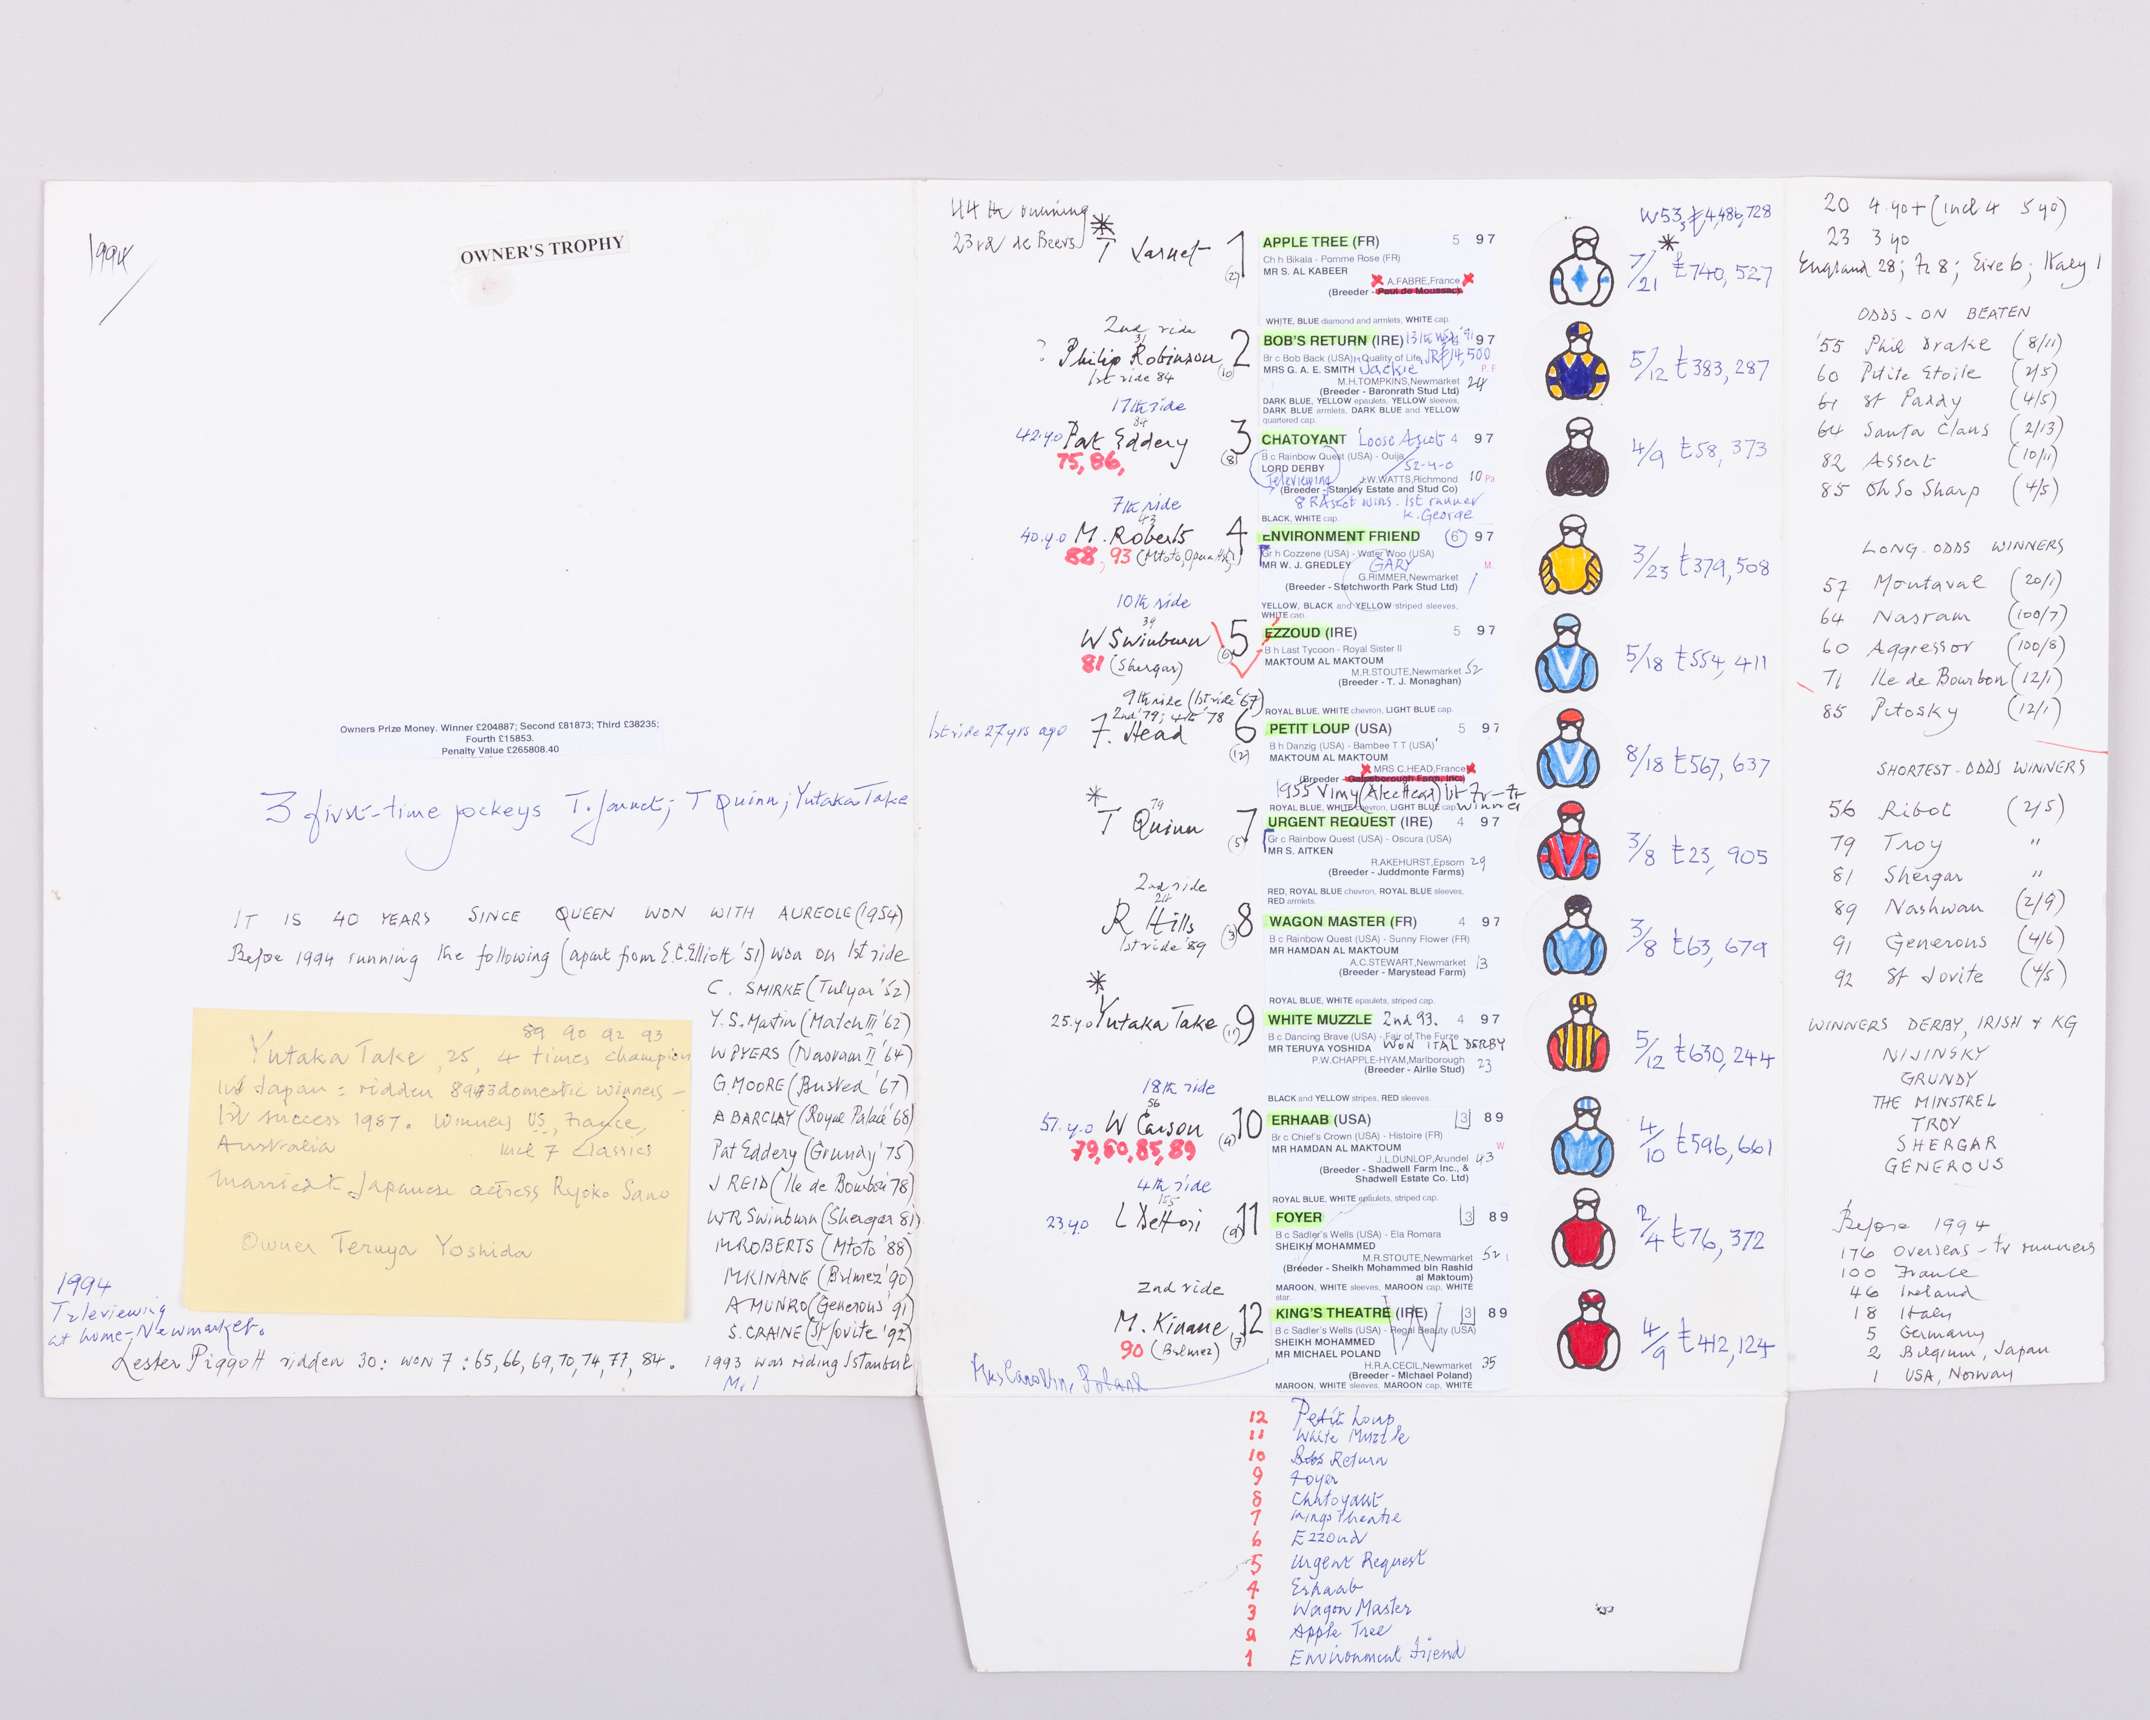 1994
OWNER'S TROPHY
Owners Prize Money. Winner £204887; Second £81873; Third £38235;
Fourth £15853.
Penalty Value £265808.40
3 first-time jockeys T. Jarnet; T Quinn; Yutaka Take
IT IS 40 YEARS SINCE QUEEN WON WITH AUREOLE (1954)
Before 1994 running the following (apart from E.C. Elliott '51) won on 1st ride
C. SMIRKE (Tulyar '52)
Y.S. Martin (Match III '62)
W PYERS (Nasram II '64)
G. MOORE (Busted '67)
A BARCLAY (Royal Palace '68)
Pat Eddery (Grundy '75)
J REID (Ile de Bourbon '78)
WR Swinburn (Shergar 81)
M ROBERTS (Mtoto '88)
M KINANE (Belmez '90)
A MUNRO (Generous '91)
S. CRAINE (St Jovite '92)
1993 was riding Istanbul
89 90 92 93
Yutaka Take, 25, 4 times champion
in Japan = ridden 893 domestic winners -
1st success 1987. Winners US, France,
Australia incl 7 classics
Married Japanese actress Ryoko Sano
Owner Teruya Yoshida
1994
Televiewing
at home - Newmarket.
Lester Piggott ridden 30: won 7: 65, 66, 69, 70, 74, 77, 84.
44th running
23rd de Beers
W53, £4,486,728
* T Jarnet 1 (2)
APPLE TREE (FR) 5 97
Ch h Bikala - Pomme Rose (FR)
MR S. AL KABEER
A.FABRE,France
(Breeder - Paul de Moussac)
WHITE, BLUE diamond and armlets, WHITE cap.
7/21 £740,527
2nd ride
31
? Philip Robinson 2 (10)
1st ride 84
BOB'S RETURN (IRE) 97
Br c Bob Back (USA) - Quality of Life, IR£14,500
MRS G. A. E. SMITH Jackie
M.H.TOMPKINS,Newmarket 24
(Breeder - Baronrath Stud Ltd)
DARK BLUE, YELLOW epaulets, YELLOW sleeves,
DARK BLUE armlets, DARK BLUE and YELLOW
quartered cap.
5/12 £383,287
17th ride
84
42.y.o Pat Eddery 3 (8)
75, 86,
CHATOYANT Loose Ascot 4 97
B c Rainbow Quest (USA) - Ouija
LORD DERBY 52-4-0
Televiewing J.W.WATTS,Richmond 10
(Breeder - Stanley Estate and Stud Co)
8 R Ascot wins. 1st runner
K. George
BLACK, WHITE cap.
4/9 £58,373
7th ride
43
40.y.o M. Roberts 4
88, 93 (Mtoto, Opera Hse) (1)
ENVIRONMENT FRIEND (6) 97
Gr h Cozzene (USA) - Water Woo (USA)
MR W. J. GREDLEY GARY
G.RIMMER,Newmarket 1
(Breeder - Stetchworth Park Stud Ltd)
YELLOW, BLACK and YELLOW striped sleeves,
WHITE cap.
3/23 £379,508
10th ride
39
W Swinburn 5 (6)
81 (Shergar)
EZZOUD (IRE) 5 97
B h Last Tycoon - Royal Sister II
MAKTOUM AL MAKTOUM
M.R.STOUTE,Newmarket 52
(Breeder - T. J. Monaghan)
ROYAL BLUE, WHITE chevron, LIGHT BLUE cap.
5/18 £554,411
9th ride (1st ride '67)
2nd '79; 4th '78
1st ride 27 yrs ago F. Head 6 (12)
PETIT LOUP (USA) 5 97
B h Danzig (USA) - Bambee T T (USA)
MAKTOUM AL MAKTOUM
MRS C.HEAD,France
(Breeder - Gainsborough Farm, Inc.)
1955 Vimy (Alec Head) 1st Fr-tr
winner
ROYAL BLUE, WHITE chevron, LIGHT BLUE cap.
8/18 £567,637
*
79
T Quinn 7 (5)
URGENT REQUEST (IRE) 4 97
Gr c Rainbow Quest (USA) - Oscura (USA)
MR S. AITKEN
R.AKEHURST,Epsom 29
(Breeder - Juddmonte Farms)
RED, ROYAL BLUE chevron, ROYAL BLUE sleeves,
RED armlets.
3/8 £23,905
2nd ride
R Hills 8 (3)
1st ride '89
WAGON MASTER (FR) 4 97
B c Rainbow Quest (USA) - Sunny Flower (FR)
MR HAMDAN AL MAKTOUM
A.C.STEWART,Newmarket 13
(Breeder - Marystead Farm)
ROYAL BLUE, WHITE epaulets, striped cap.
3/8 £63,679
*
25.y.o Yutaka Take 9 (11)
WHITE MUZZLE 2nd 93. 4 97
B c Dancing Brave (USA) - Fair of The Furze
MR TERUYA YOSHIDA WON ITAL DERBY
P.W.CHAPPLE-HYAM,Marlborough 23
(Breeder - Airlie Stud)
BLACK and YELLOW stripes, RED sleeves.
5/12 £630,244
18th ride
56
51.y.o W Carson 10 (4)
79, 80, 85, 89
ERHAAB (USA) 3 89
Br c Chief's Crown (USA) - Histoire (FR)
MR HAMDAN AL MAKTOUM
J.L.DUNLOP,Arundel 43
(Breeder - Shadwell Farm Inc., &
Shadwell Estate Co. Ltd)
ROYAL BLUE, WHITE epaulets, striped cap.
4/10 £596,661
4th ride
155
23 y.o L Dettori 11 (9)
FOYER 3 89
B c Sadler's Wells (USA) - Ela Romara
SHEIKH MOHAMMED
M.R.STOUTE,Newmarket 52
(Breeder - Sheikh Mohammed bin Rashid
al Maktoum)
MAROON, WHITE sleeves, MAROON cap, WHITE
star.
2/4 £76,372
2nd ride
M. Kinane 12 (7)
90 (Belmez)
KING'S THEATRE (IRE) 3 89
B c Sadler's Wells (USA) - Regal Beauty (USA)
SHEIKH MOHAMMED
MR MICHAEL POLAND
H.R.A.CECIL,Newmarket 35
(Breeder - Michael Poland)
MAROON, WHITE sleeves, MAROON cap, WHITE
Mrs Carolin, Poland
4/9 £412,124
12 Petit Loup
11 White Muzzle
10 Bobs Return
9 Foyer
8 Chatoyant
7 Kings Theatre
6 Ezzoud
5 Urgent Request
4 Erhaab
3 Wagon Master
2 Apple Tree
1 Environment Friend
20 4.yo+ (incl 4 5yo)
23 3 yo
England 28; Fr 8; Eire 6; Italy 1
ODDS-ON BEATEN
'55 Phil Drake (8/11)
60 Petite Etoile (2/5)
61 St Paddy (4/5)
64 Santa Claus (2/13)
82 Assert (10/11)
85 Oh So Sharp (4/5)
LONG-ODDS WINNERS
57 Montaval (20/1)
64 Nasram (100/7)
60 Aggressor (100/8)
71 Ile de Bourbon (12/1)
85 Petosky (12/1)
SHORTEST-ODDS WINNERS
56 Ribot (2/5)
79 Troy "
81 Shergar "
89 Nashwan (2/9)
91 Generous (4/6)
92 St Jovite (4/5)
WINNERS DERBY, IRISH & KG
NIJINSKY
GRUNDY
THE MINSTREL
TROY
SHERGAR
GENEROUS
Before 1994
176 Overseas-tr runners
100 France
46 Ireland
18 Italy
5 Germany
2 Belgium, Japan
1 USA, Norway